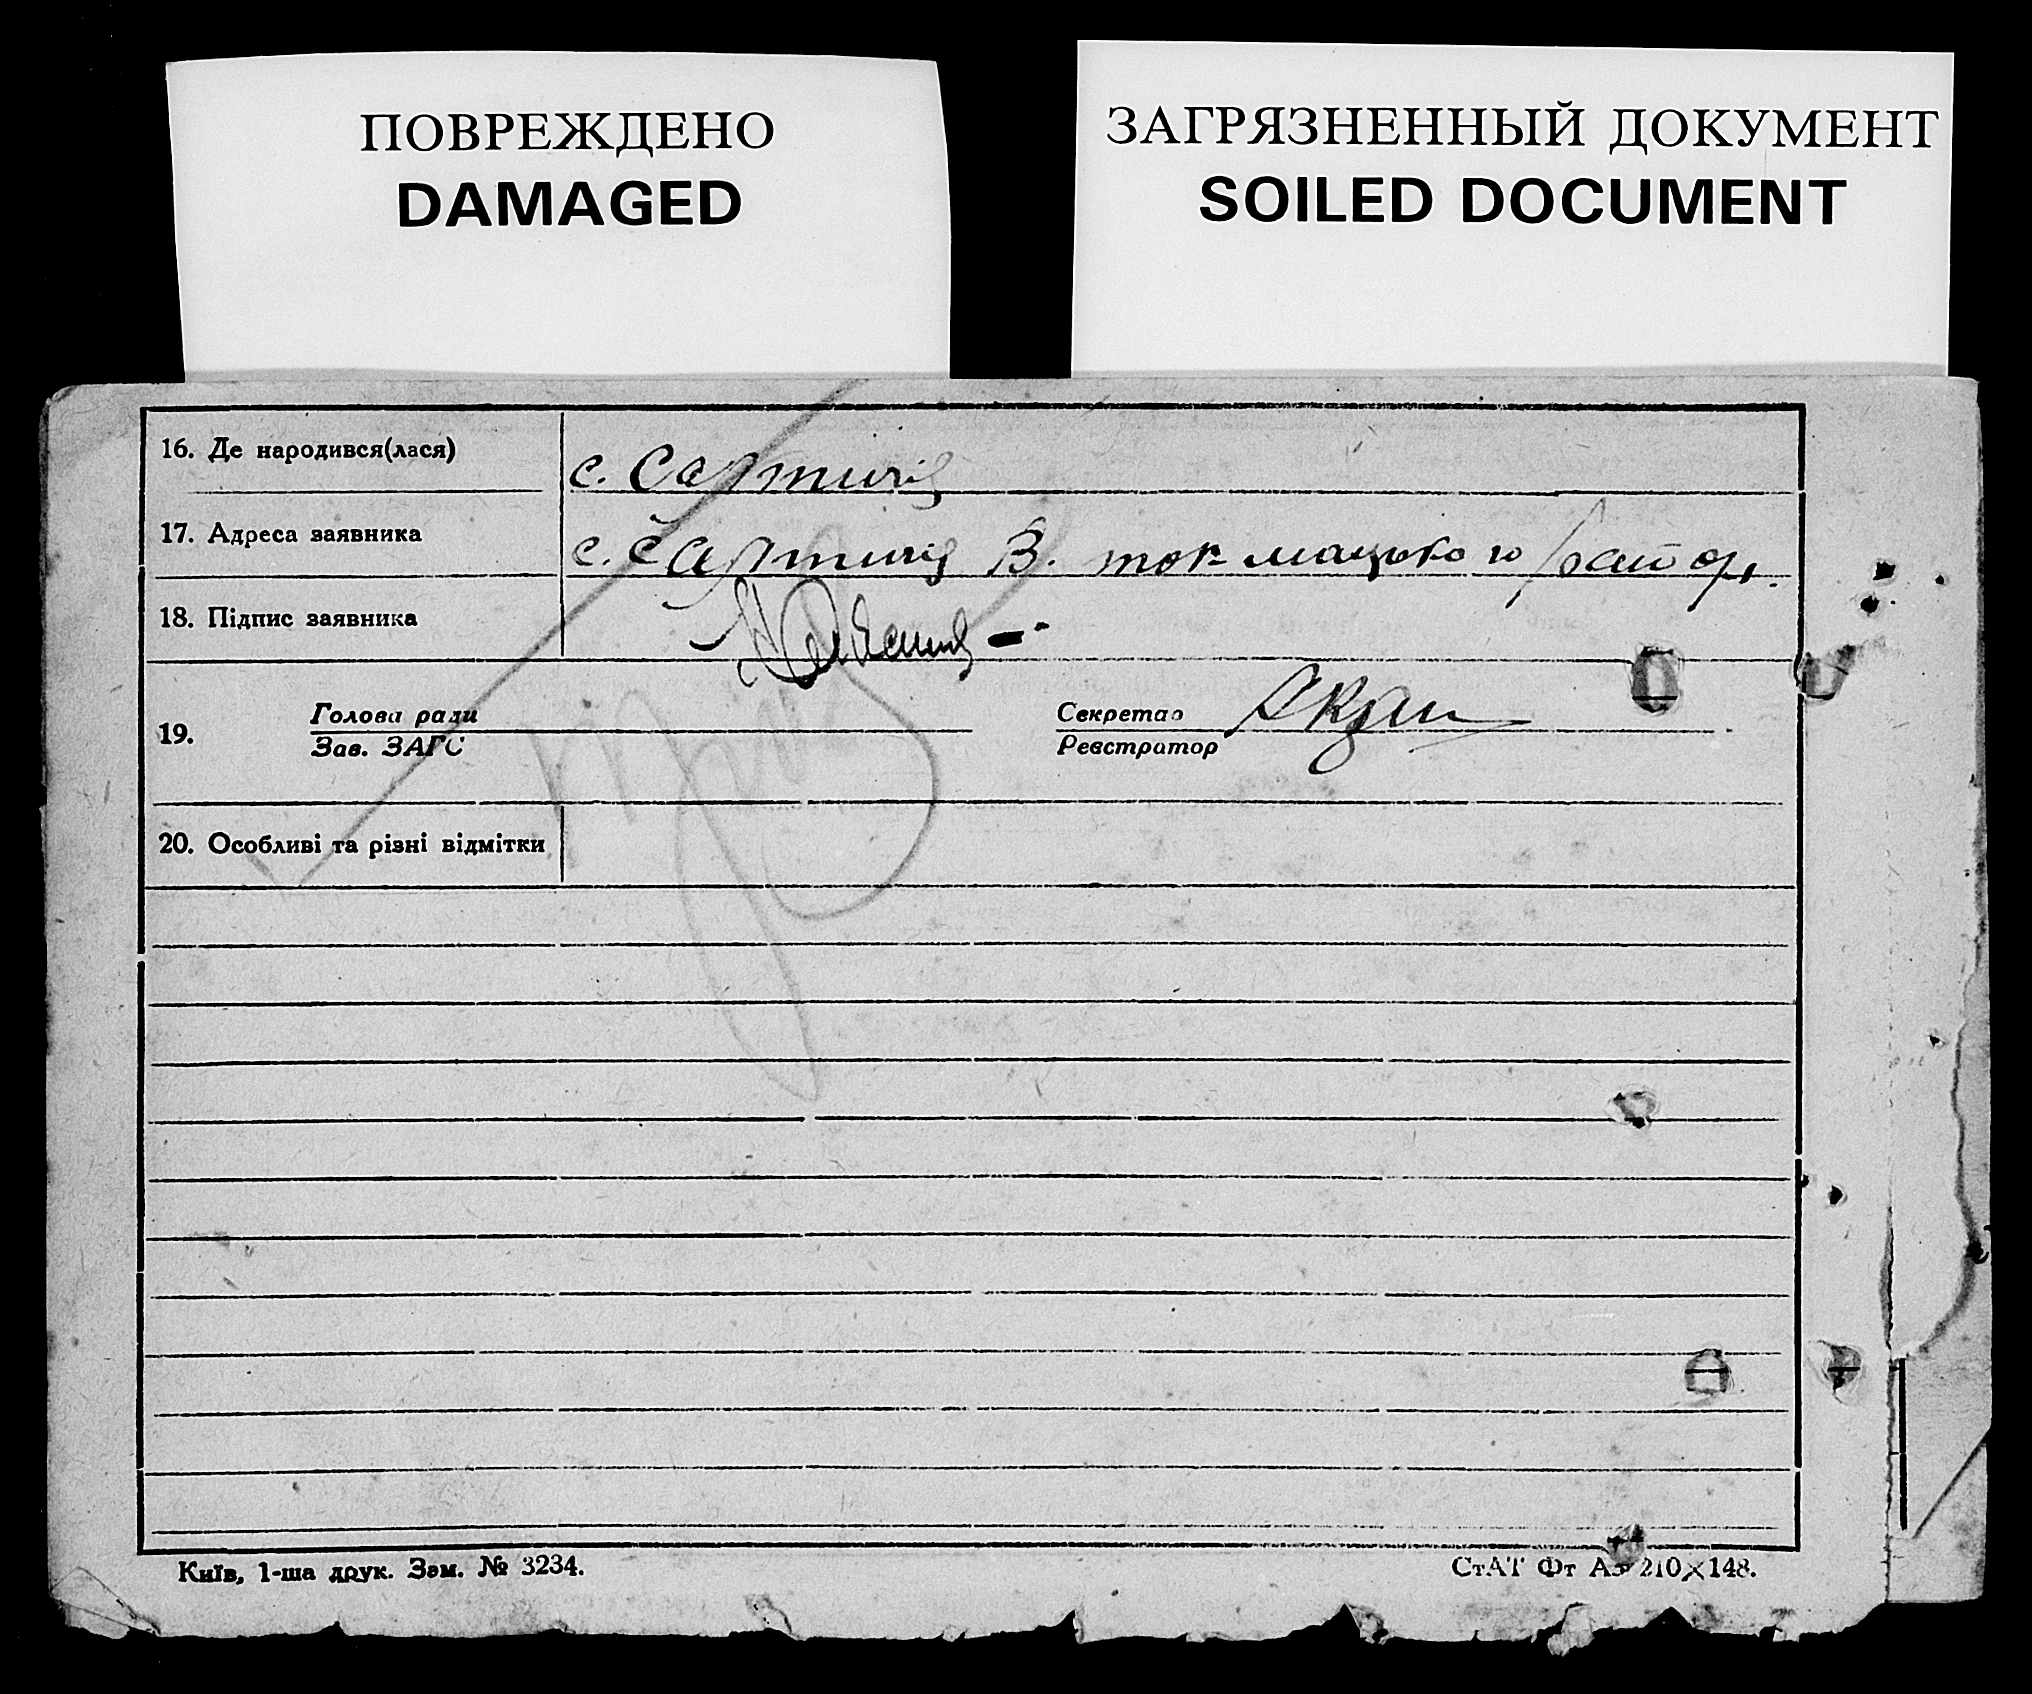 ПОВРЕЖДЕНО
DAMAGED
ЗАГРЯЗНЕННЫЙ ДОКУМЕНТ
SOILED DOCUMENT
16. Де народився(лася)
с.
17. Адреса заявника
с. В. токмацького району.
18. Підпис заявника
19. Голова ради
Зав. ЗАГС
Секретар
Реєстратор
20. Особливі та різні відмітки
Київ, 1-ша друк. Зам. № 3234.
СтАТ Фт А5 210×148.